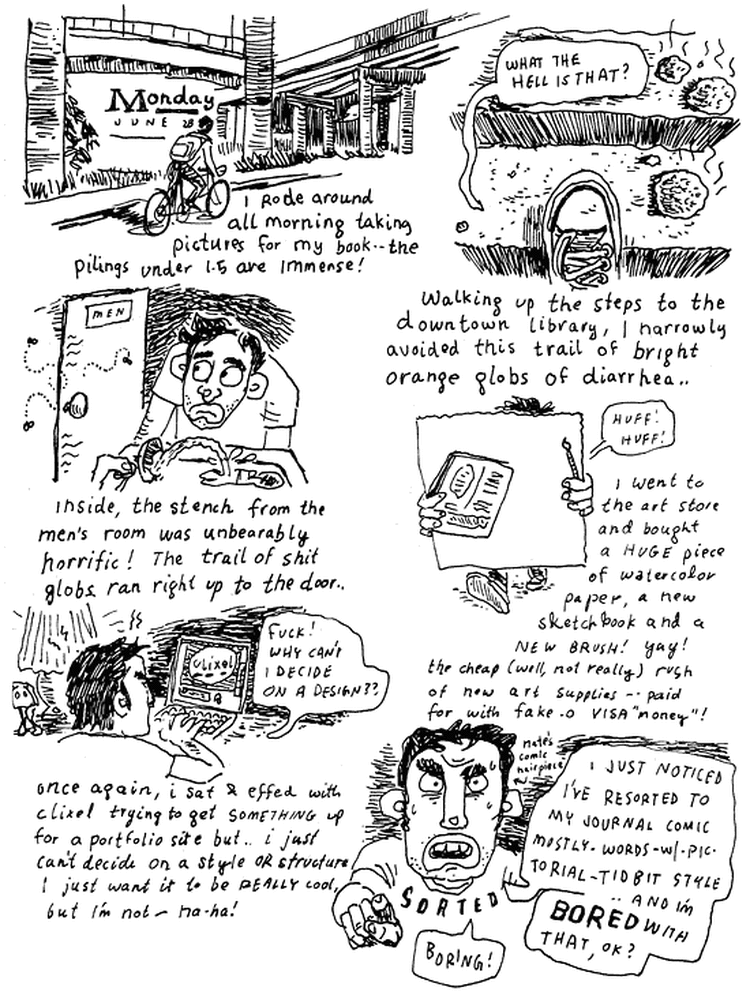 Monday
JUNE 28
I Rode around
all morning taking
pictures for my book--the
pilings under I-5 are Immense!
WHAT THE
HELL IS THAT?
Walking up the steps to the
downtown library, I narrowly
avoided this trail of bright
orange globs of diarrhea..
MEN
Inside, the stench from the
men's room was unbearably
horrific! The trail of shit
globs ran right up to the door..
HUFF!
HUFF!
I went to
the art store
and bought
a HUGE piece
of watercolor
paper, a new
sketchbook and a
NEW BRUSH! yay!
the cheap (well, not really) rush
of new art supplies -- paid
for with fake-o VISA "money"!
clixel
FUCK!
WHY CAN'T
I DECIDE
ON A DESIGN??
once again, i sat & effed with
clixel trying to get SOMETHING up
for a portfolio site but.. i just
can't decide on a style OR structure
I just want it to be REALLY cool,
but I'm not - Ha-ha!
Nate's
comic
hairpiece
I JUST NOTICED
I'VE RESORTED TO
MY JOURNAL COMIC
MOSTLY-WORDS-W/-PIC-
TORIAL-TIDBIT STYLE
.. AND I'M
BORED WITH
THAT, OK?
SORTED
BORING!